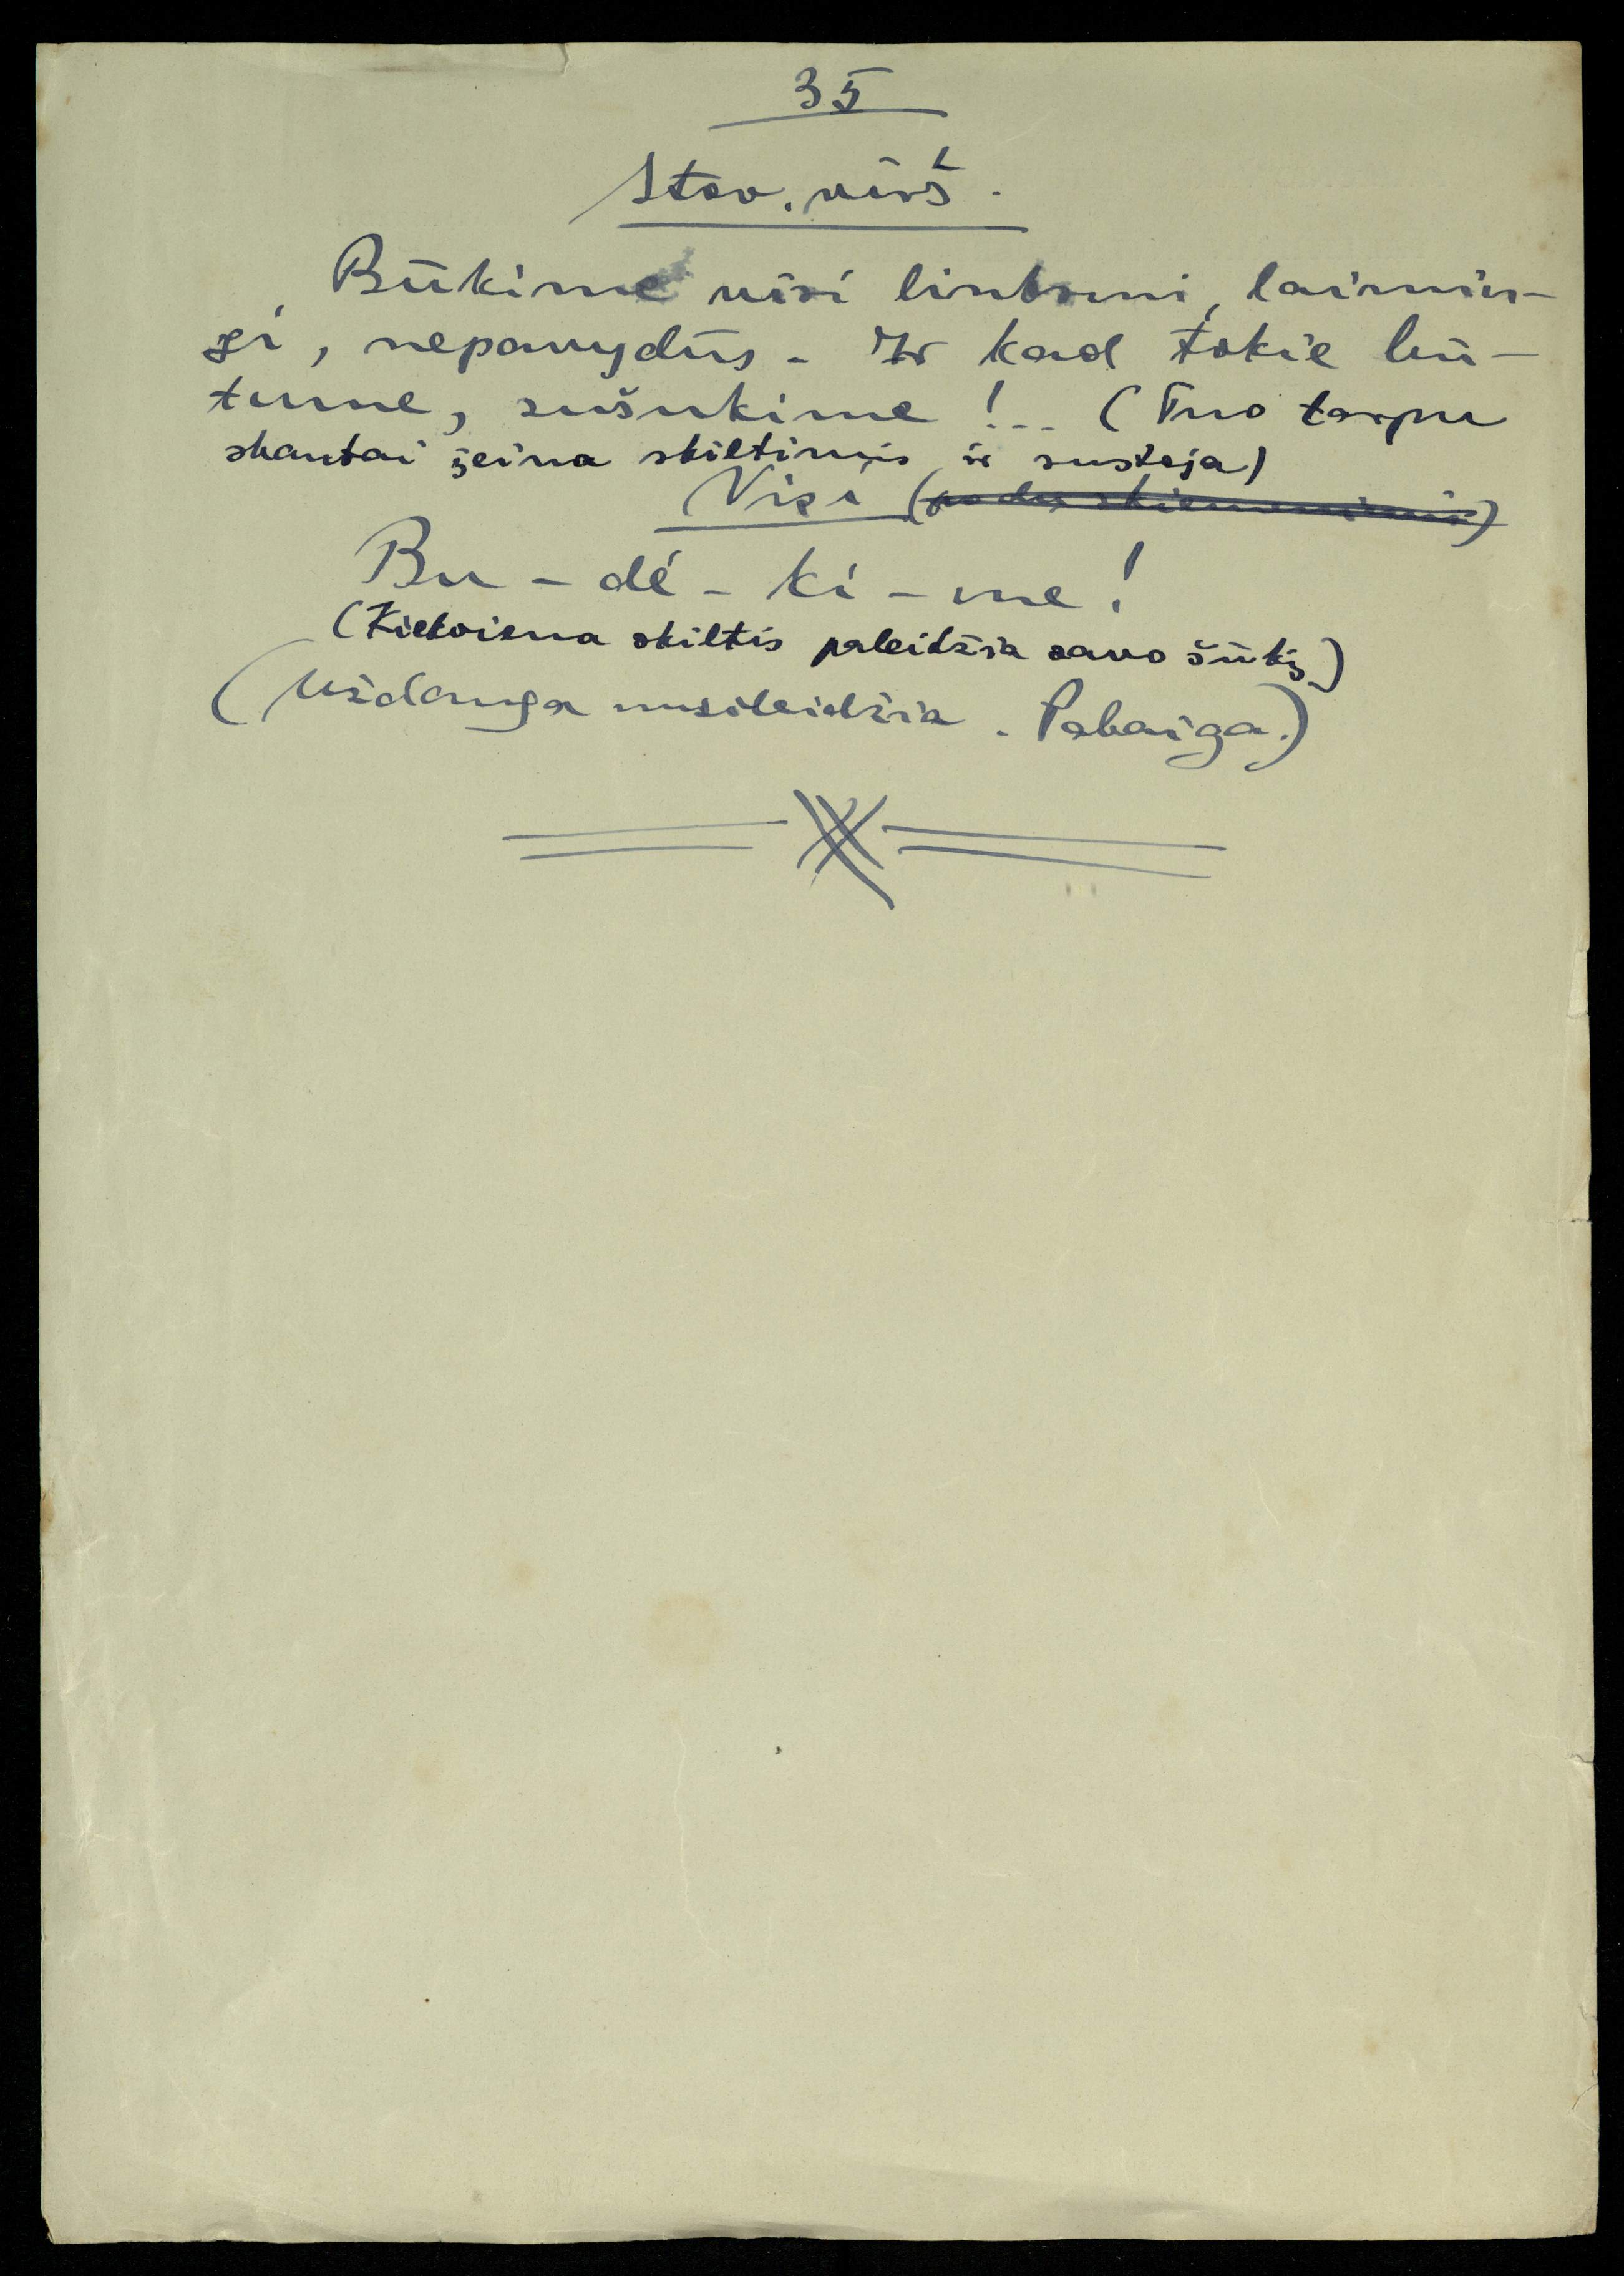 35
Stov. virš.
Būkime visi linksmi, laimin-
gi, nepavydūs. Ir kad tokie bū-
tume, sušukime!... (Tuo tarpu
skautai įeina skiltimis ir sustoja)
Visi (po du skiemenimis)
Bu - dė - ki - me!
(Kiekviena skiltis paleidžia savo šūkį)
(Uždanga nusileidžia. Pabaiga.)